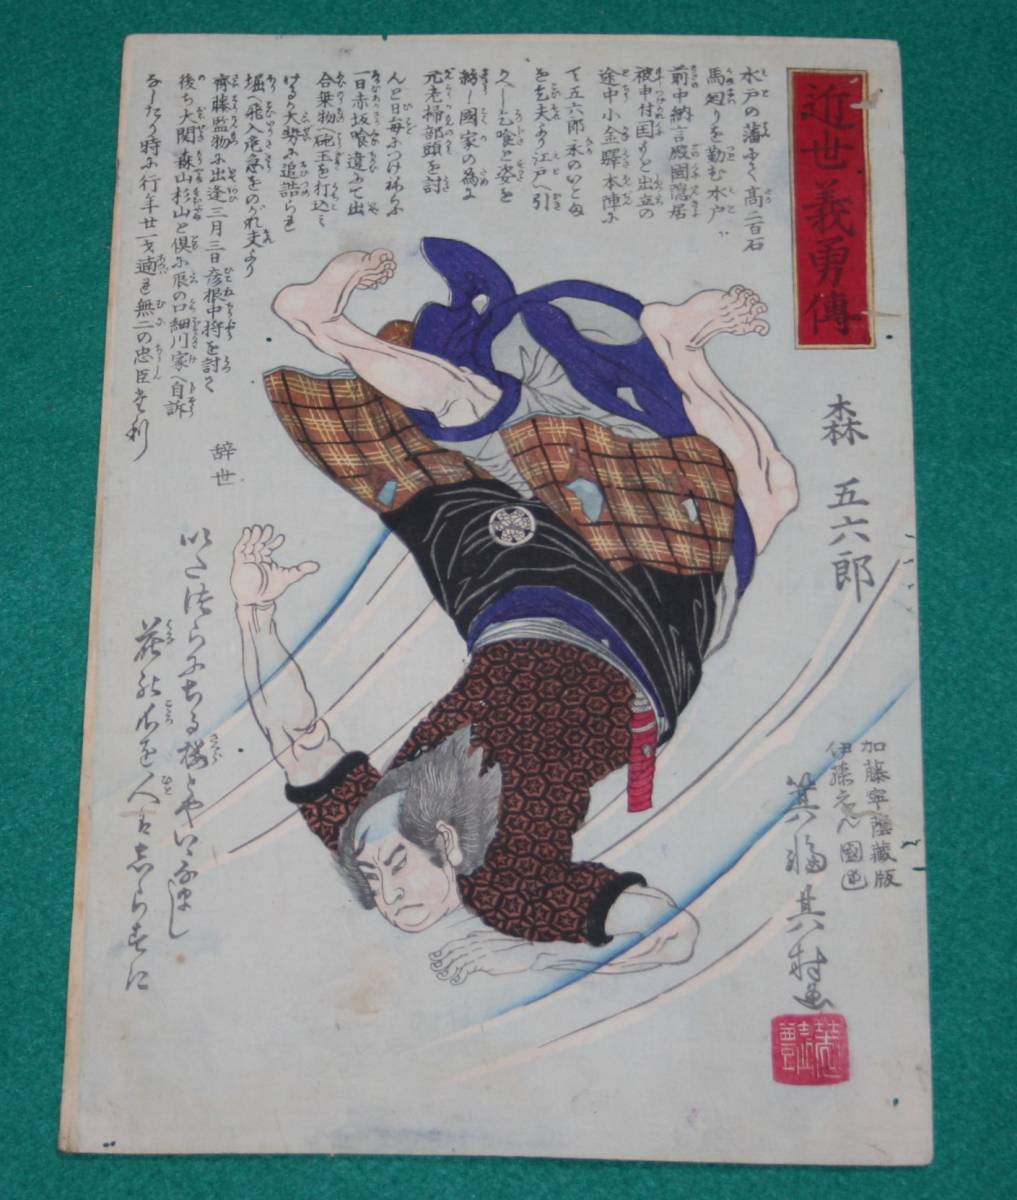 近世義勇傳
森 五六郎
水戸の藩にて高二百石
馬廻りを勤む水戸
前中納言殿國隠居
被申付国もと出立の
途中小金驛本陣に
て五六郎永のいとま
を乞夫より江戸へ引
久しく乞喰と姿を
窶し國家の為に
元老掃部頭を討
んと日毎につけねらふ
一日赤坂喰違にて出
合乗物へ砲玉を打込み
けるか大勢に追詰られ
堀へ飛入危急をのがれ夫より
齊藤監物に出逢三月三日彦根中将を討て
後ち大関森山杉山と倶に辰の口細川家へ自訴
なしたり時に行年廿一才適れ無二の忠臣
辞世
いたづらにちる櫻とやいはなまし
花の心を人はしらずに
加藤寧蔭蔵版